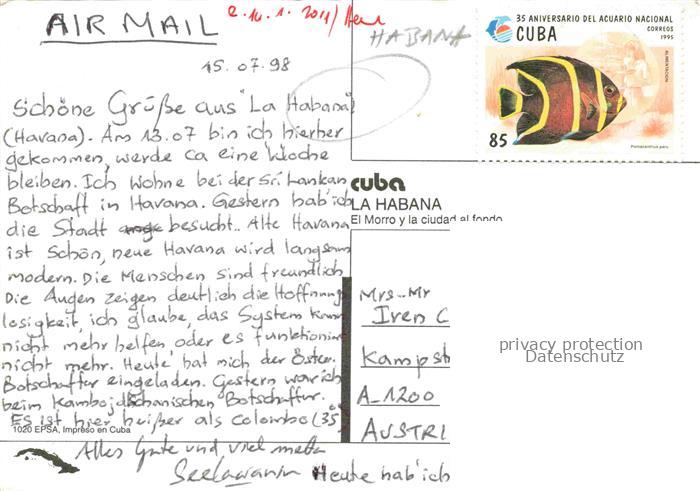 AIR MAIL
HABANA
35 ANIVERSARIO DEL ACUARIO NACIONAL
CUBA
CORREOS
1995
ALIMENTACION
85
Pomacanthus paru
15.07.98
Schöne Grüße aus "La Habana"
(Havana). Am 13.07 bin ich hierher
gekommen, werde ca eine Woche
bleiben. Ich wohne bei der Sri Lankan
Botschaft in Havana. Gestern hab'ich
die Stadt besucht.. Alte Havana
ist schön, neue Havana wird langsam
modern. Die Menschen sind freundlich
Die Augen zeigen deutlich die Hoffnung
losigkeit, ich glaube, das System kann
nicht mehr helfen oder es funktioniert
nicht mehr. Heute hat mich der Öster.
Botschafter eingeladen. Gestern war ich
beim Kambojdschanischen Botschafter.
Es ist hier heißer als Colombo (35°
Alles Gute und viel
Heute hab'ich
1020 EPSA, Impreso en Cuba
cuba
LA HABANA
El Morro y la ciudad al fondo
Mrs.. Mr
Iren C
Kampst
A-1200
AUSTRI
privacy protection
Datenschutz